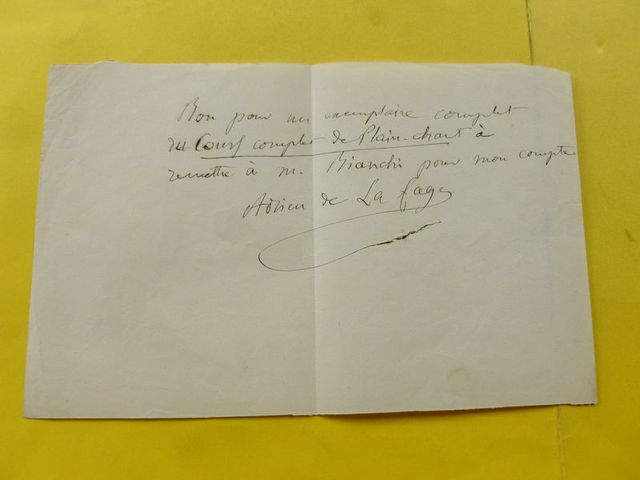 Bon pour un exemplaire complet
du Cours complet de Plain-chant à
remettre à M. Bianchi pour mon compte
Adrien de La fage